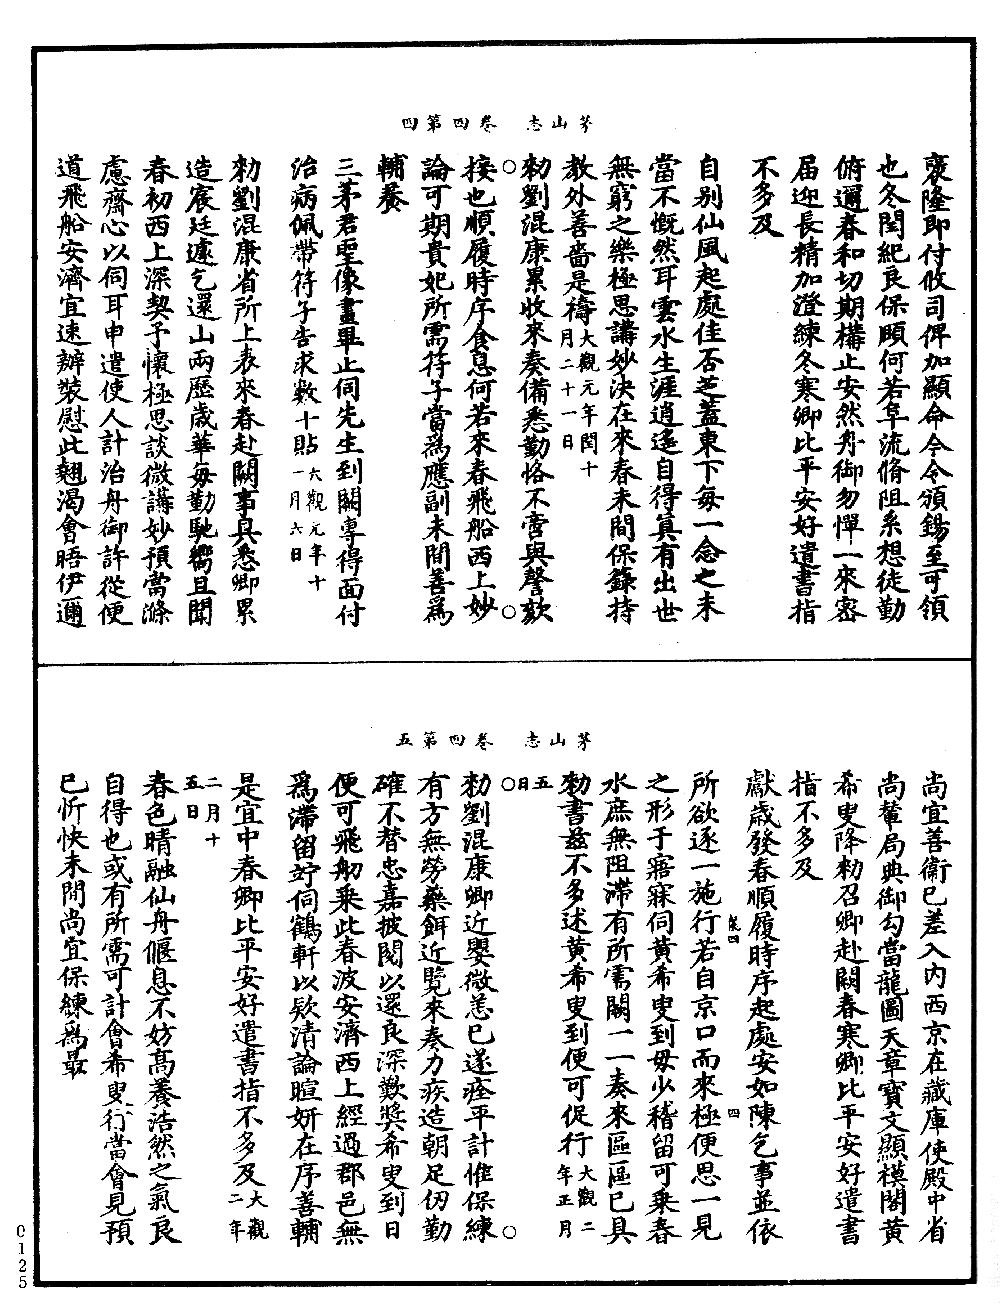 茅山志　卷四第四
褒隆即付攸司俾加顯命令令頒錫至可領
也冬閏紀良保頤何若阜流脩阻系想徒勤
俯邇春和切期搆止安然舟御勿憚一來密
届迎長精加澄練冬寒卿比平安好遣書指
不多及
自别仙風起處佳否芝蓋東下每一念之未
當不慨然耳雲水生涯逍遙自得眞有出世
無窮之樂極思講妙決在來春未間保籙持
教外善嗇是禱大觀元年閏十月二十一日
○　○
勑劉混康累收來奏備悉勤恪不啻與謦欬
接也順履時序食息何若來春飛船西上妙
論可期貴妃所需符子當爲應副未間善爲
輔養
三茅君聖像畫畢止伺先生到闕專得面付
治病佩帶符子告求數十貼大觀元年十一月六日
勑劉混康省所上表來春赴闕事具悉卿累
造宸廷遽乞還山兩歷歲華每勤馳嚮且聞
春初西上深契予懷極思談微講妙預當滌
慮齋心以伺耳申遣使人計治舟御許從便
道飛船安濟宜速辦裝慰此翹渴會晤伊邇
茅山志　卷四第五
尚宜善衛已差入内西京在藏庫使殿中省
尚輦局典御勾當龍圖天章寶文顯模閣黄
希叟降勑召卿赴闕春寒卿比平安好遣書
指不多及
獻歲發春順履時序起處安如陳乞事並依
所欲逐一施行若自京口而來極便思一見
之形于寤寐伺黄希叟到毋少稽留可乘春
水庶無阻滯有所需闕一一奏來區區已具
勑書兹不多述黄希叟到便可促行大觀二年正月五日
○　○
勑劉混康卿近嬰微恙已遂痊平計惟保練
有方無勞藥餌近覽來奏力疾造朝足仞勤
確不替忠嘉披閲以還良深歎奬希叟到日
便可飛舠乘此春波安濟西上經過郡邑無
爲滯留竚伺鶴軒以欵清論暄妍在序善輔
是宜中春卿比平安好遣書指不多及大觀二年二月十五日
春色晴融仙舟偃息不妨高養浩然之氣良
自得也或有所需可計會希叟行當會見預
已忻快未間尚宜保練爲最
四
0125